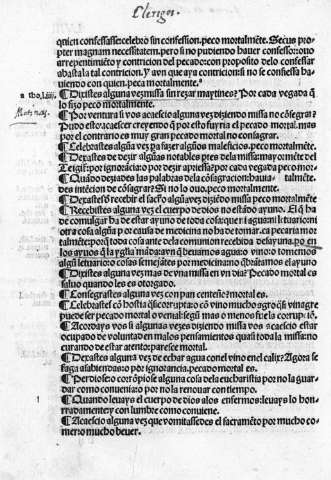 Clerigos.
quien confessasse: celebro sin confession. peco mortalmẽte. Secus pro
pter magnam necessitatem. pero si no pudiendo hauer confessor: ouo
arrepentimiẽto y contricion del pecado: con proposito de lo confessar
abasta la tal contricion. Y avn que aya contricion: si no se confiessa ha
uiendo con quien. peca mortalmente.
¶ Dixistes alguna vez missa sin rezar maytines? Por cada vegada q̃
lo fizo peco mortalmente.
Maytines.
¶ Por ventura si vos acaescio alguna vez diziendo missa no cõsegrar?
Pudo esto acaescer creyendo q̃ por esto fuyria el pecado mortal. mas
por el contrario es muy gran pecado mortal no consagrar.
¶ Celebrastes algũa vez pa fazer algũos maleficios. peco mortalmẽte.
¶ Dexastes de dezir algũas notables
¶ Quãdo deziades las palabras dela cõsagracion: hauia talmẽte.
des intẽcion de cõsagrar? Si no lo ouo. peco mortalmente.
¶ Recebistes alguna vez el cuerpo de dios no estãdo ayuno. El q̃ ha
de comulgar ha de estar ayuno de toda cosa: que ri
otra cosa algũa por causa de medicina no ha de tomar. ca pecaria mor
talmẽte: porq̃ toda cosa ante dela comunion recebida desayuna. po en
los ayuos q̃ la yglia mãda avnq̃ beuamos agua o vino o tomemos
algũ letuario o cosas semejates por medicina no q̃brãtamos el ayuno
¶ Dixistes alguna vez mas de vna missa en vn dia? Pecado mortal es
saluo quando les es otorgado.
¶ Consegrastes alguna vez con pan centeño? mortal es.
¶ Celebrastes cõ hostia q̃ fuesse corrupta: o cõ vino mucho agro: q̃ si es vinagre
puede ser pecado mortal o venial: segũ mas o menos fue la corrupciõ.
¶ Acordays vos si alguna vezes diziendo missa vos acaescio estar
ocupado de voluntad en malos pensamientos quasi toda la missa: no
curando de estar atento: paresce mortal.
¶ Dexastes alguna vez de echar agua con el vino en el caliz? Agora se
faga a sabiendas: o por ignorancia. pecado mortal es.
¶ Perdiose o corrõpiose alguna cosa dela eucharistia por no la guar-
dar como conuenia: o por no la renouar con tiempo.
1
¶ Quando leuays el cuerpo de dios alos enfermos: leuays lo hon-
rradamente: y con lumbre como conuiene.
¶ Acaescio alguna vez que vomitassedes el sacramẽto por mucho co-
mer: o mucho beuer.